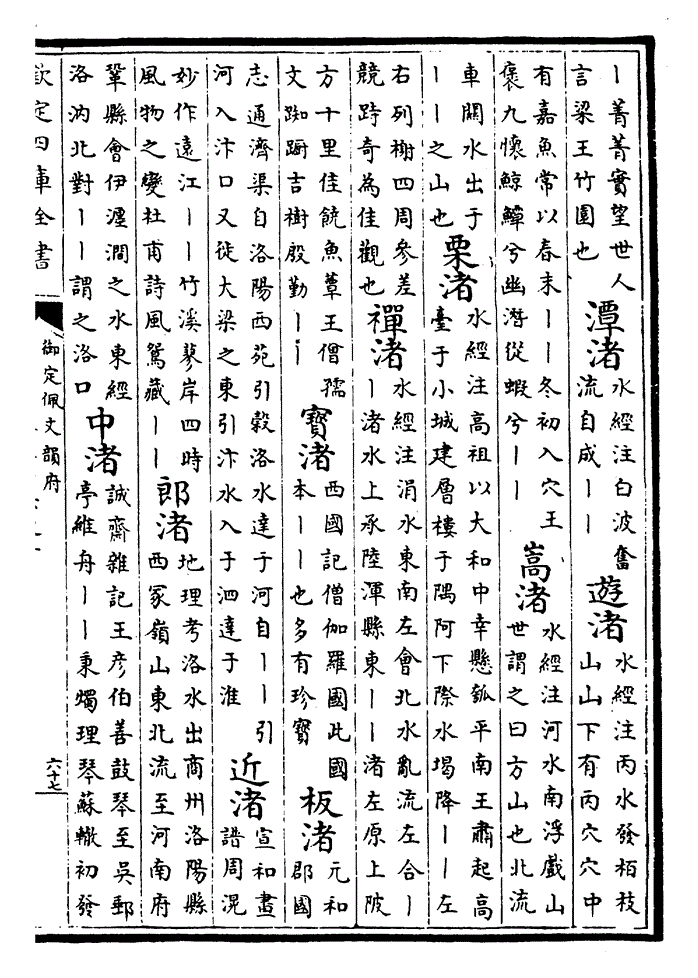 丨菁菁實望世人
言梁王竹園也
潭渚
水經注白波奮
流自成丨丨
遊渚
水經注丙水發栢枝
山山下有丙穴穴中
有嘉魚常以春末丨丨冬初入穴王
褒九懷鯨鱏兮幽潛從蝦兮丨丨
嵩渚
水經注河水南浮戲山
世謂之曰方山也北流
車關水出于
丨丨之山也
粟渚
水經注高祖以大和中幸懸瓠平南王肅起高
臺于小城建層樓于隅阿下際水堨降丨丨左
右列榭四周參差
競跱奇為佳觀也
禪渚
水經注涓水東南左會北水亂流左合丨
丨渚水上承陸渾縣東丨丨渚左原上陂
方十里佳饒魚蕈王僧孺
文踟蹰吉樹殷勤丨丨
寶渚
西國記僧伽羅國此國
本丨丨也多有珍寶
板渚
元和
郡國
志通濟渠自洛陽西苑引榖洛水達于河自丨丨引
河入汴口又從大梁之東引汴水入于泗達于淮
近渚
宣和畫
譜周滉
妙作遠江丨丨竹溪蓼岸四時
風物之變杜甫詩風鴛藏丨丨
郎渚
地理考洛水出商州洛陽縣
西冢嶺山東北流至河南府
鞏縣會伊瀍澗之水東經
洛汭北對丨丨謂之洛口
中渚
誠齋雜記王彥伯善鼓琴至吳郵
亭維舟丨丨秉燭理琴蘇轍初發
欽定四庫全書
御定佩文韻府
六十七